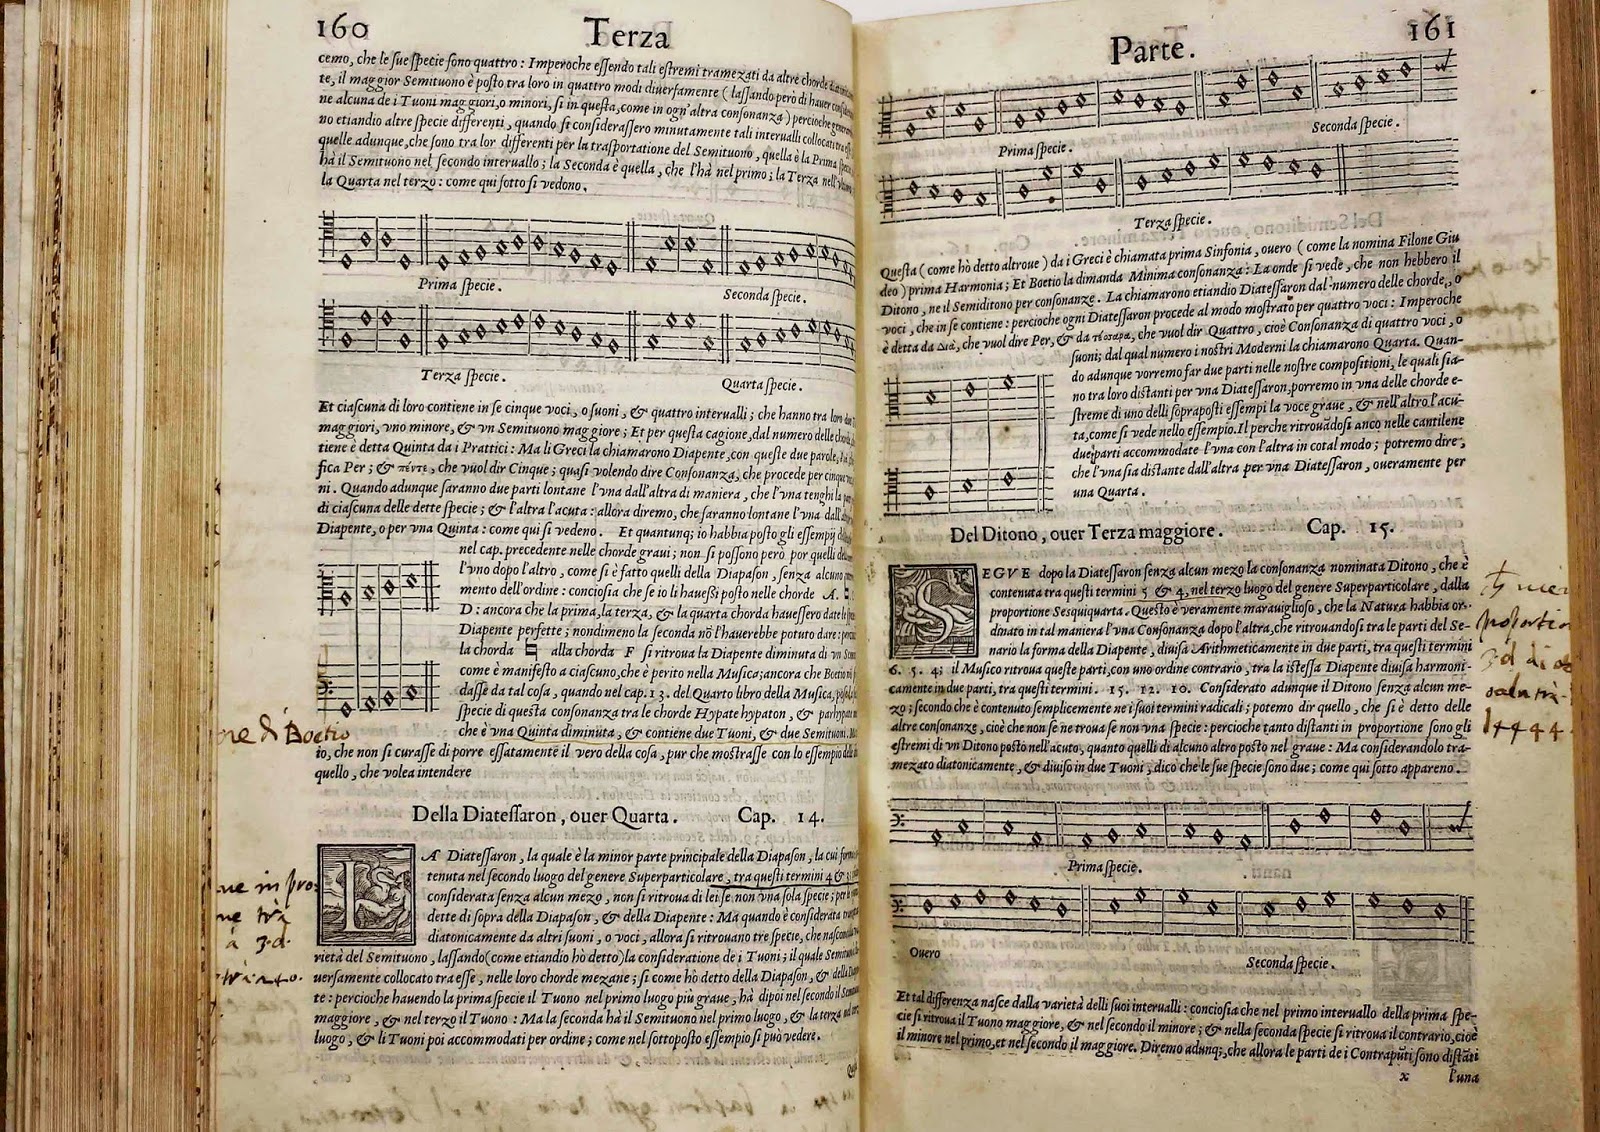 160 Terza
cemo, che le ſue ſpecie ſono quattro : Imperoche eſſendo tali eſtremi tramezati da altre chorde
te, il maggior Semituono è poſto tra loro in quattro modi diuerſamente ( laſſando però di hauer
ne alcuna de i Tuoni maggiori, o minori, ſi in queſta, come in ogn'altra conſonanza ) percioche
no etiandio altre ſpecie differenti, quando ſi conſideraſſero minutamente tali interualli collocati
quelle adunque, che ſono tra lor differenti per la traſportatione del Semituono, quella è la Prima
hà il Semituono nel ſecondo interuallo ; la Seconda è quella, che l'hà nel primo ; la Terza
la Quarta nel terzo : come qui ſotto ſi vedono.
Prima ſpecie. Seconda ſpecie.
Terza ſpecie. Quarta ſpecie.
Et ciaſcuna di loro contiene in ſe cinque voci, o ſuoni, & quattro interualli ; che hanno tra loro
maggiori, vno minore, & vn Semituono maggiore ; Et per queſta cagione, dal numero delle
tiene è detta Quinta da i Prattici : Ma li Greci la chiamarono Diapente, con queſte due parole,
fica Per ; & πέντε, che vuol dir Cinque ; quaſi volendo dire Conſonanza, che procede per cinque
ni. Quando adunque ſaranno due parti lontane l'vna dall'altra di maniera, che l'vna tenghi la
di ciaſcuna delle dette ſpecie ; & l'altra l'acuta : allora diremo, che ſaranno lontane l'vna
Diapente, o per vna Quinta : come qui ſi vedeno. Et quantunq; io habbia poſto gli eſſempij
nel cap. precedente nelle chorde graui ; non ſi poſſono però por quelli
l'vno dopo l'altro, come ſi è fatto quelli della Diapaſon, ſenza alcuno
mento dell'ordine : concioſia che ſe io li haueſſi poſto nelle chorde A.
D : ancora che la prima, la terza, & la quarta chorda haueſſero date le
Diapente perfette ; nondimeno la ſeconda nō l'hauerebbe potuto dare :
la chorda ♮ alla chorda F ſi ritroua la Diapente diminuta di vn
come è manifeſto a ciaſcuno, che è perito nella Muſica ; ancora che Boetio
daſſe da tal coſa, quando nel cap. 13. del Quarto libro della Muſica,
ſpecie di queſta conſonanza tra le chorde Hypate hypaton, & parhypate
che è vna Quinta diminuta, & contiene due Tuoni, & due Semituoni.
io, che non ſi curaſſe di porre eſſatamente il vero della coſa, pur che moſtraſſe con lo eſſempio
quello, che volea intendere
di Boetio
Della Diateſſaron, ouer Quarta. Cap. 14.
LA Diateſſaron, la quale è la minor parte principale della Diapaſon, la cui
tenuta nel ſecondo luogo del genere Superparticolare, tra queſti termini 4 & 3
conſiderata ſenza alcun mezo, non ſi ritroua di lei ſe non vna ſola ſpecie ;
dette di ſopra della Diapaſon, & della Diapente : Ma quando è conſiderata
diatonicamente da altri ſuoni, o voci, allora ſi ritrouano tre ſpecie, che
rietà del Semituono, laſſando (come etiandio hò detto) la conſideratione de i Tuoni ; il quale
uerſamente collocato tra eſſe, nelle loro chorde mezane ; ſi come hò detto della Diapaſon, & della
te : percioche hauendo la prima ſpecie il Tuono nel primo luogo più graue, hà dipoi nel ſecondo il
maggiore, & nel terzo il Tuono : Ma la ſeconda hà il Semituono nel primo luogo, & la terza
luogo, & li Tuoni poi accommodati per ordine ; come nel ſottopoſto eſſempio ſi può vedere.
Parte. 161
Prima ſpecie. Seconda ſpecie.
Terza ſpecie.
Queſta ( come hò detto altroue ) da i Greci è chiamata prima Sinfonia, ouero ( come la nomina Filone Giu
deo ) prima Harmonia ; Et Boetio la dimanda Minima conſonanza : La onde ſi vede, che non hebbero il
Ditono, ne il Semiditono per conſonanze. La chiamarono etiandio Diateſſaron dal numero delle chorde, o
voci, che in ſe contiene : percioche ogni Diateſſaron procede al modo moſtrato per quattro voci : Imperoche
è detta da διὰ, che vuol dire Per, & da τέσσαρα, che vuol dir Quattro, cioè Conſonanza di quattro voci, o
ſuoni ; dal qual numero i noſtri Moderni la chiamarono Quarta. Quan-
do adunque vorremo far due parti nelle noſtre compoſitioni, le quali ſia-
no tra loro diſtanti per vna Diateſſaron, porremo in vna delle chorde e-
ſtreme di uno delli ſoprapoſti eſſempi la voce graue, & nell'altro l'acu-
ta, come ſi vede nello eſſempio. Il perche ritrouādoſi anco nelle cantilene
due parti accommodate l'vna con l'altra in cotal modo ; potremo dire,
che l'vna ſia diſtante dall'altra per vna Diateſſaron, oueramente per
una Quarta.
Del Ditono, ouer Terza maggiore. Cap. 15.
SEGVE dopo la Diateſſaron ſenza alcun mezo la conſonanza nominata Ditono, che è
contenuta tra queſti termini 5 & 4, nel terzo luogo del genere Superparticolare, dalla
proportione Seſquiquarta. Queſto è veramente marauiglioſo, che la Natura habbia or-
dinato in tal maniera l'vna Conſonanza dopo l'altra, che ritrouandoſi tra le parti del Se-
nario la forma della Diapente, diuiſa Arithmeticamente in due parti, tra queſti termini
6. 5. 4 ; il Muſico ritroua queſte parti, con uno ordine contrario, tra la iſteſſa Diapente diuiſa harmoni-
camente in due parti, tra queſti termini. 15. 12. 10. Conſiderato adunque il Ditono ſenza alcun me-
zo ; ſecondo che è contenuto ſemplicemente ne i ſuoi termini radicali ; potemo dir quello, che ſi è detto delle
altre conſonanze, cioè che non ſe ne troua ſe non vna ſpecie : percioche tanto diſtanti in proportione ſono gli
eſtremi di vn Ditono poſto nell'acuto, quanto quelli di alcuno altro poſto nel graue : Ma conſiderandolo tra-
mezato diatonicamente, & diuiſo in due Tuoni ; dico che le ſue ſpecie ſono due ; come qui ſotto appareno.
Prima ſpecie.
Ouero Seconda ſpecie.
Et tal differenza naſce dalla varietà delli ſuoi interualli : concioſia che nel primo interuallo della prima ſpe-
cie ſi ritroua il Tuono maggiore, & nel ſecondo il minore ; & nella ſeconda ſpecie ſi ritroua il contrario, cioè
il minore nel primo, et nel ſecondo il maggiore. Diremo adunq;, che allora le parti de i Contrapūti ſono diſtāti
x l'una